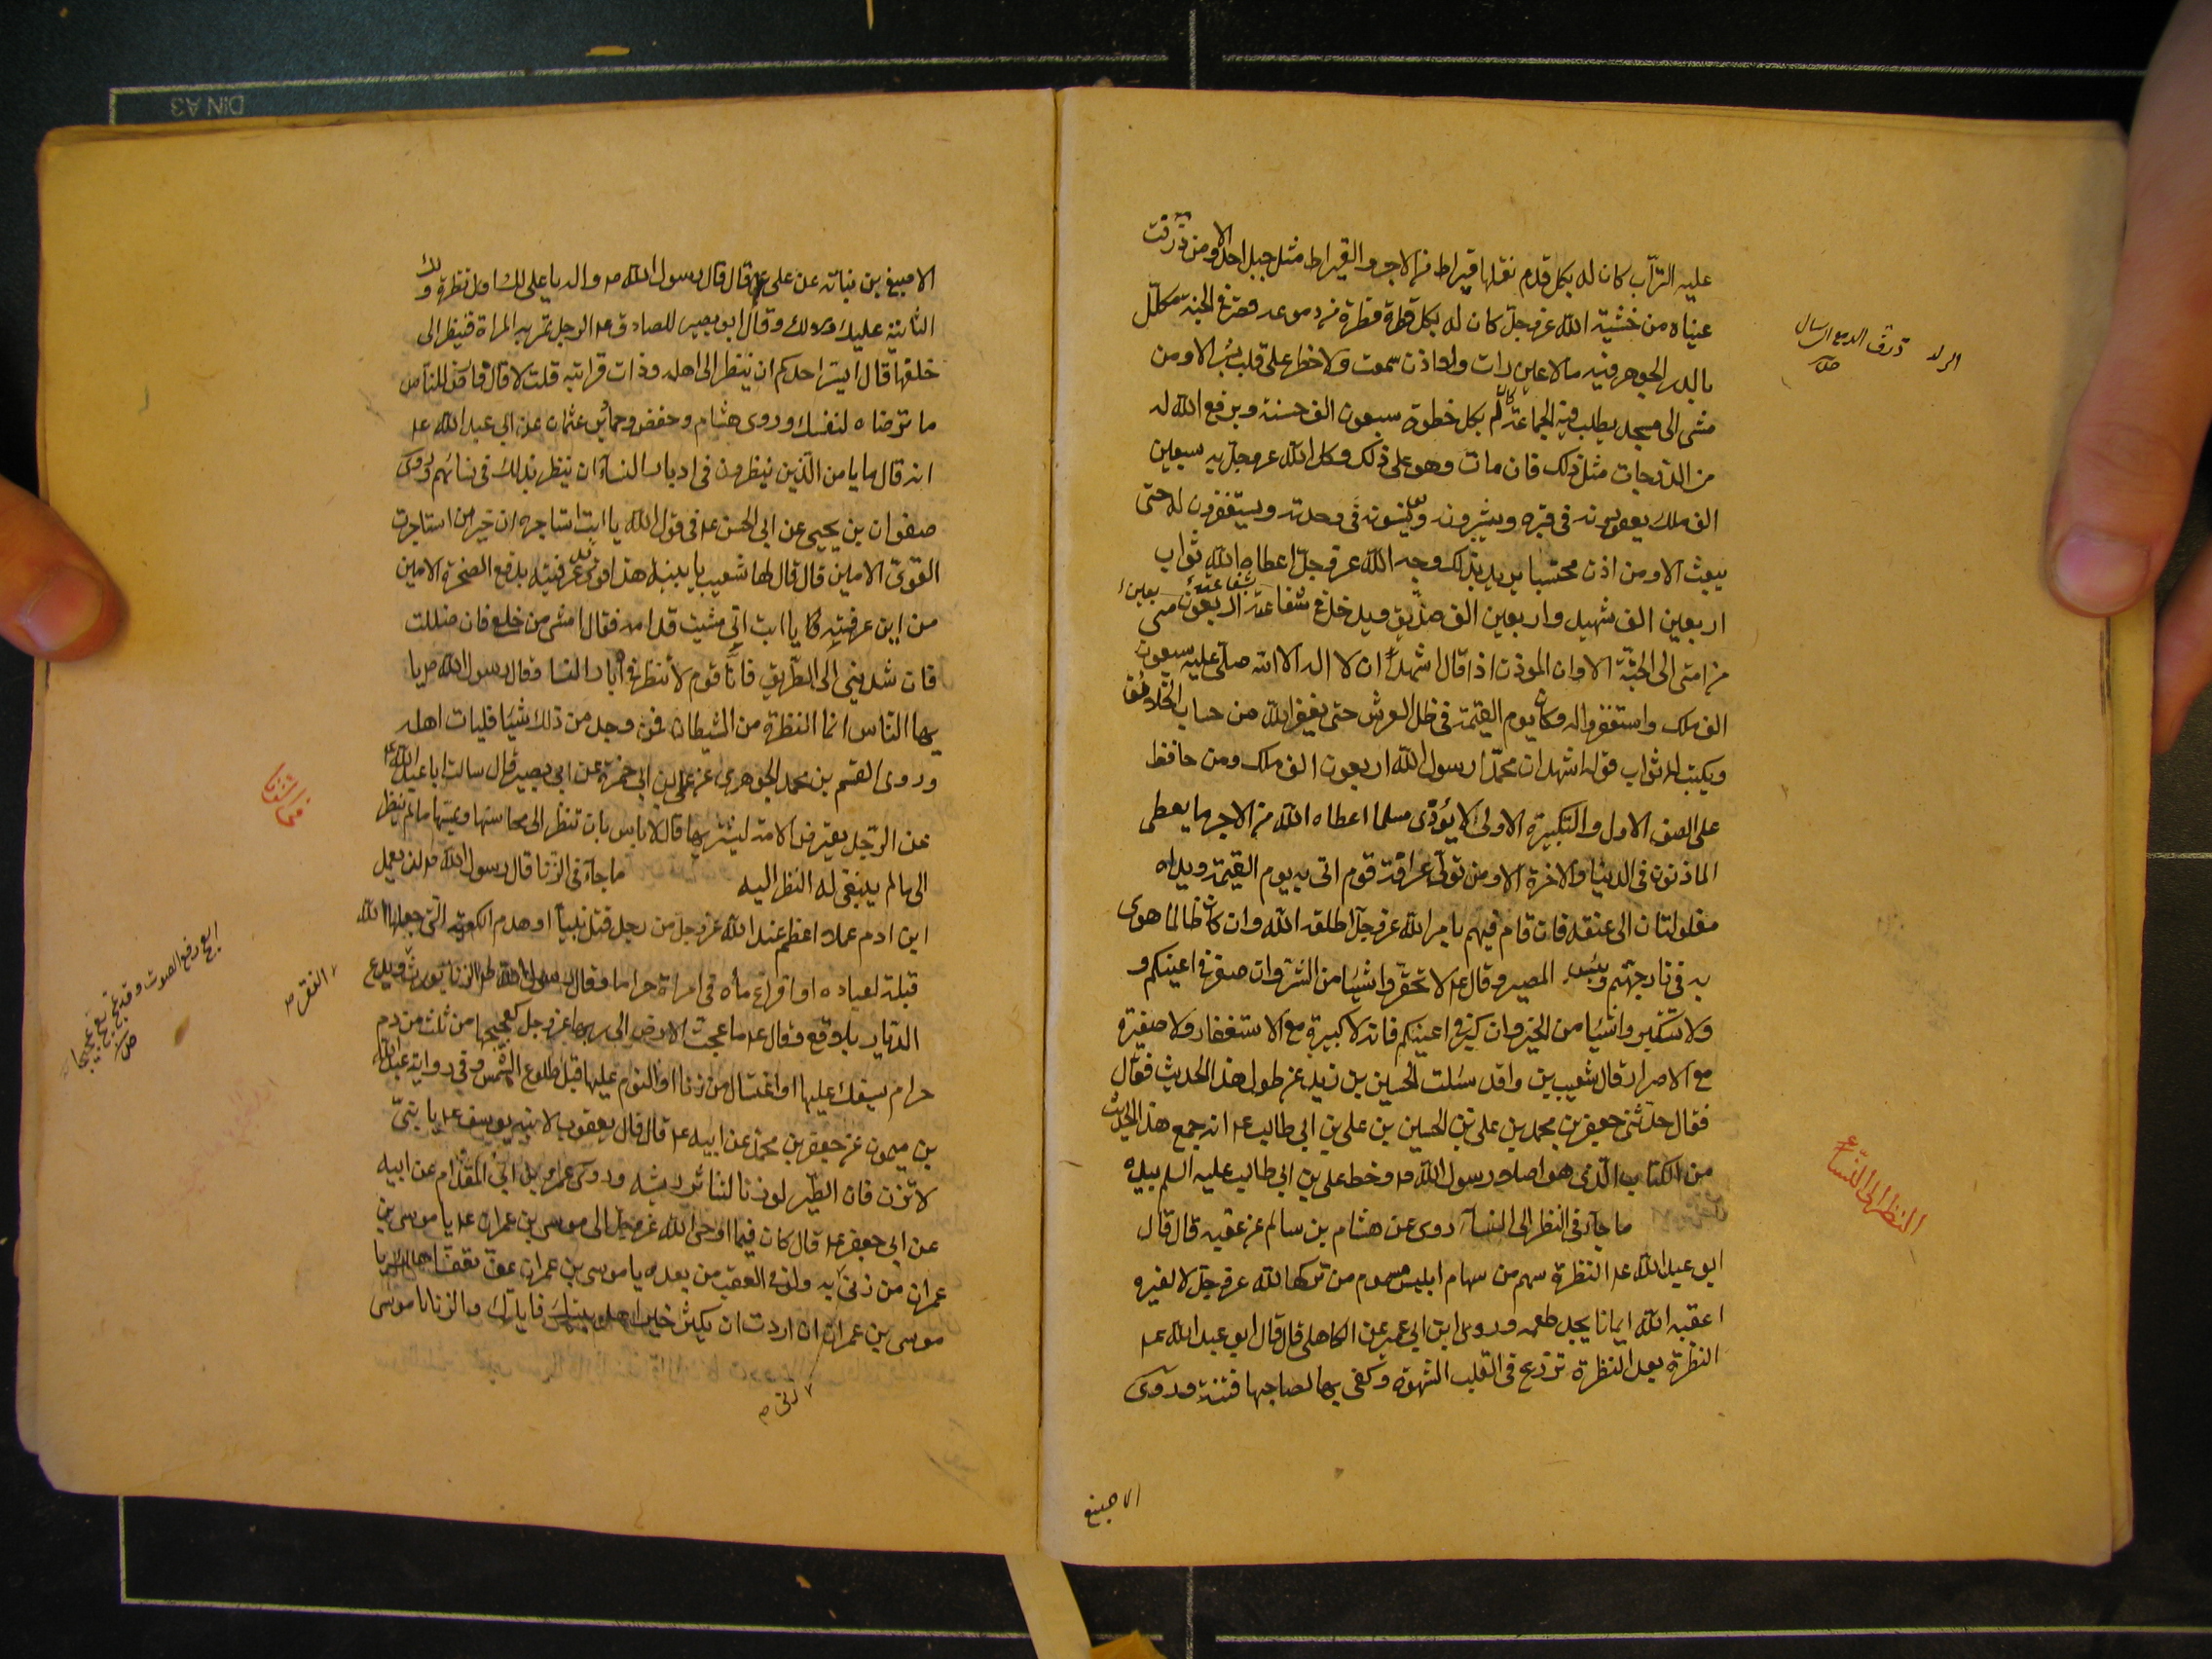 عليه التراب كان له بكل قدم نقلها قيراط من الاجر والقيراط مثل جبل احد الا ومن ذرفت
عيناه من خشية الله عز وجل كان له بكل قطرة قطرة من دموعه قصر في الجنة مكلل
بالدر والجوهر فيه ما لا عين رات ولا اذن سمعت ولا خطر على قلب بشر الا ومن
مشى الى مسجد يطلب فيه الجماعة كان له بكل خطوة سبعون الف حسنة ويرفع الله له
من الدرجات مثل ذلك فان مات وهو على ذلك وكل الله عز وجل به سبعين
الف ملك يعودونه في قبره ويبشرونه ويونسونه في وحدته ويستغفرون له حتى
يبعث الا ومن اذن محتسبا يريد بذلك وجه الله عز وجل اعطاه الله ثواب
اربعين الف شهيد واربعين الف صديق ويدخل في شفاعته اربعون مسي
من امتي الى الجنة الا وان الموذن اذا قال اشهد ان لا اله الا الله صلى عليه سبعون
الف ملك واستغفروا له وكان يوم القيمة في ظل العرش حتى يفرغ الله من حساب الخلائق
ويكتب له ثواب قوله اشهد ان محمدا رسول الله اربعون الف ملك ومن حافظ
على الصف الاول والتكبيرة الاولى لا يؤذي مسلما اعطاه الله من الاجر ما يعطى
الماذنون في الدنيا والاخرة الا ومن تولى عرافة قوم اتى به يوم القيمة ويداه
مغلولتان الى عنقه فان قام فيهم بامر الله عز وجل اطلقه الله وان كان ظالما هوى
به في نار جهنم وبئس المصير وقال عه لا تحقروا شيئا من الشر وان صغر في اعينكم و
ولا تستكبروا شيئا من الخير وان كبر في اعينكم فانه لا كبيرة مع الاستغفار ولا صغيرة
مع الاصرار قال شعيب بن واقد سئلت الحسين بن زيد عن طول هذا الحديث فقال
فقال حدثني جعفر بن محمد بن علي بن الحسين بن علي بن ابي طالب عه انه جمع هذا الحديث
من الكتاب الذي هو املاء رسول الله ص وخط علي بن ابي طالب عليه السلم بيده
ما جاء في النظر الى النساء روى عن هشام بن سالم عن عقبه قال قال
ابو عبد الله عه النظرة سهم من سهام ابليس مسموم من تركها لله عز وجل لا لغيره
اعقبه الله ايمانا يجد طعمه وروى ابن ابي عمير عن الكاهلي قال قال ابو عبد الله عه
النظرة بعد النظرة تزرع في القلب الشهوة وكفى بها لصاحبها فتنة وروى
الاصبغ
ذرف الدمع اي سال
النظر الى النساء
الاصبغ بن نباته عن علي عه قال قال رسول الله ص واله يا علي لك اول نظرة و
الثانية عليك ولا لك وقال ابو بصير للصادق عه الرجل تمر به المراة فينظر الى
خلفها قال ايسر احدكم ان ينظر الى اهله وذات قرابته قلت لا قال فارض للناس
ما ترضاه لنفسك وروى هشام وحفص وحماد بن عثمان عن ابي عبد الله عه
انه قال ما يامن الذين ينظرون في ادبار النساء ان ينظر بذلك في نسائهم وروى
صفوان بن يحيى عن ابي الحسن عه في قول الله يا ابت استاجره ان خير من استاجرت
القوي الامين قال قال لها شعيب يا بنية هذا قوي قد عرفتيه بدفع الصخرة الامين
من اين عرفتيه قال يا ابت اني مشيت قدامه فقال امشي من خلفي فان ضللت
فارشديني الى الطريق فانا قوم لا ننظر في ادبار النسا وقال رسول الله ص يا
ايها الناس انما النظرة من الشيطان فمن وجد من ذلك شيئا فليات اهله
وروى القسم بن محمد الجوهري عن علي بن ابي حمزة عن ابي بصير قال سالت ابا عبد الله عه
عن الرجل يعترض الامة ليشتريها قال لا باس بان تنظر الى محاسنها ويمسها ما لم ينظر
الى ما لم ينبغى له النظر اليه ما جاء في الزنا قال رسول الله ص لن يعمل
ابن ادم عملا اعظم عند الله عز وجل من رجل قتل نبيا او هدم الكعبة التي جعلها الله
قبلة لعباده او افراغ ماه في امراة حراما وقال رسول الله ص الزنا يورث ويدع
الديار بلاقع وقال عه ما عجت الارض الى ربها عز وجل كعجيجها من ثلث من دم
حرام يسفك عليها او اغتسال من زنا او النوم عليها قبل طلوع الشمس وفي رواية عبد الله
بن ميمون عن جعفر بن محمد عن ابيه عه قال قال يعقوب لابنه يوسف عه يا بني
لا تزن فان الطير لو زنا لتناثر ريشه وروى عمرو بن ابي المقدام عن ابيه
عن ابي جعفر عه قال كان فيما اوحى الله عز وجل الى موسى بن عمران عه يا موسى بن
عمران من زنى به ولو في العقب من بعده يا موسى بن عمران عف تعف اهلك يا
موسى بن عمران ان اردت ان يكثر خير اهل بيتك فاياك والزنا يا موسى
في الزنا
الفقر ص
العج رفع الصوت وقد عج يعج عجيجا
زنى ص